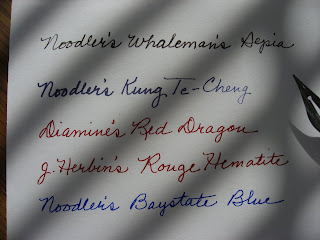 Noodler's Whaleman's Sepia
Noodler's Kung Te-Cheng
Diamine's Red Dragon
J. Herbin's Rouge Hematite
Noodler's Baystate Blue